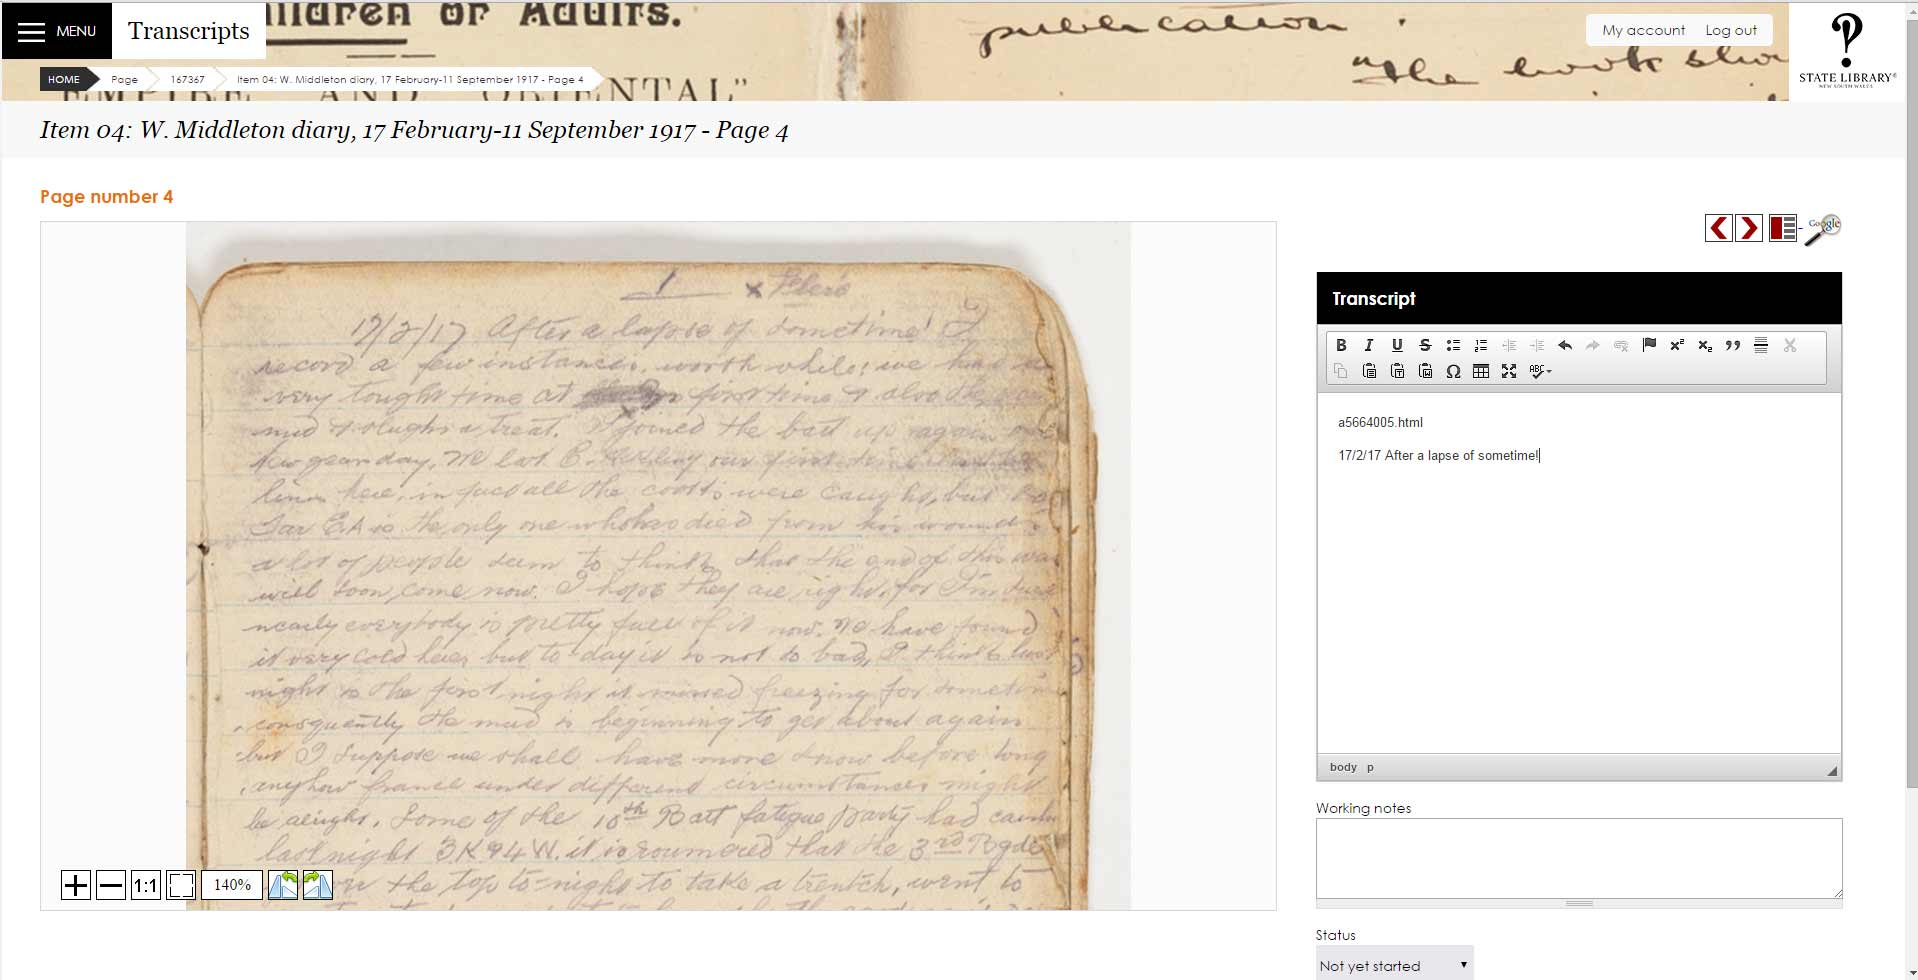 MENU
Transcripts
ildren or Adults.
publication
My account Log out
HOME Page 167367 Item 04: W. Middleton diary, 17 February-11 September 1917 - Page 4
EMPIRE AND ORIENTAL"
"the book
STATE LIBRARY®
NEW SOUTH WALES
Item 04: W. Middleton diary, 17 February-11 September 1917 - Page 4
Page number 4
1 x
17/2/17 After a lapse of sometime! I
record a few instances, worth while; we had a
very tought time at first time & also the
mud & slughs a treat. I joined the batt up again
New years day, We lost C. our first time
lines here, in fact all the coott's were caught, but
Gar EA is the only one whohas died from his wounds
a lot of people seem to think that the end of this war
will soon come now. I hope they are right, for I'm sure
nearly everybody is pretty full of it now. We have found
it very cold here, but to-day it is not so bad, I think last
night is the first night it missed freezing for sometime
consquently the mud is beginning to get about again
but I suppose we shall have more snow before long
anyhow france under different circumstances might
be alright. Some of the 10th Batt fatigue party had
last night 3 K & 4 W. it is roumered that the 3rd Bgde
the top to-night to take a trentch, went to
140%
Google
Transcript
a5664005.html
17/2/17 After a lapse of sometime!
body p
Working notes
Status
Not yet started